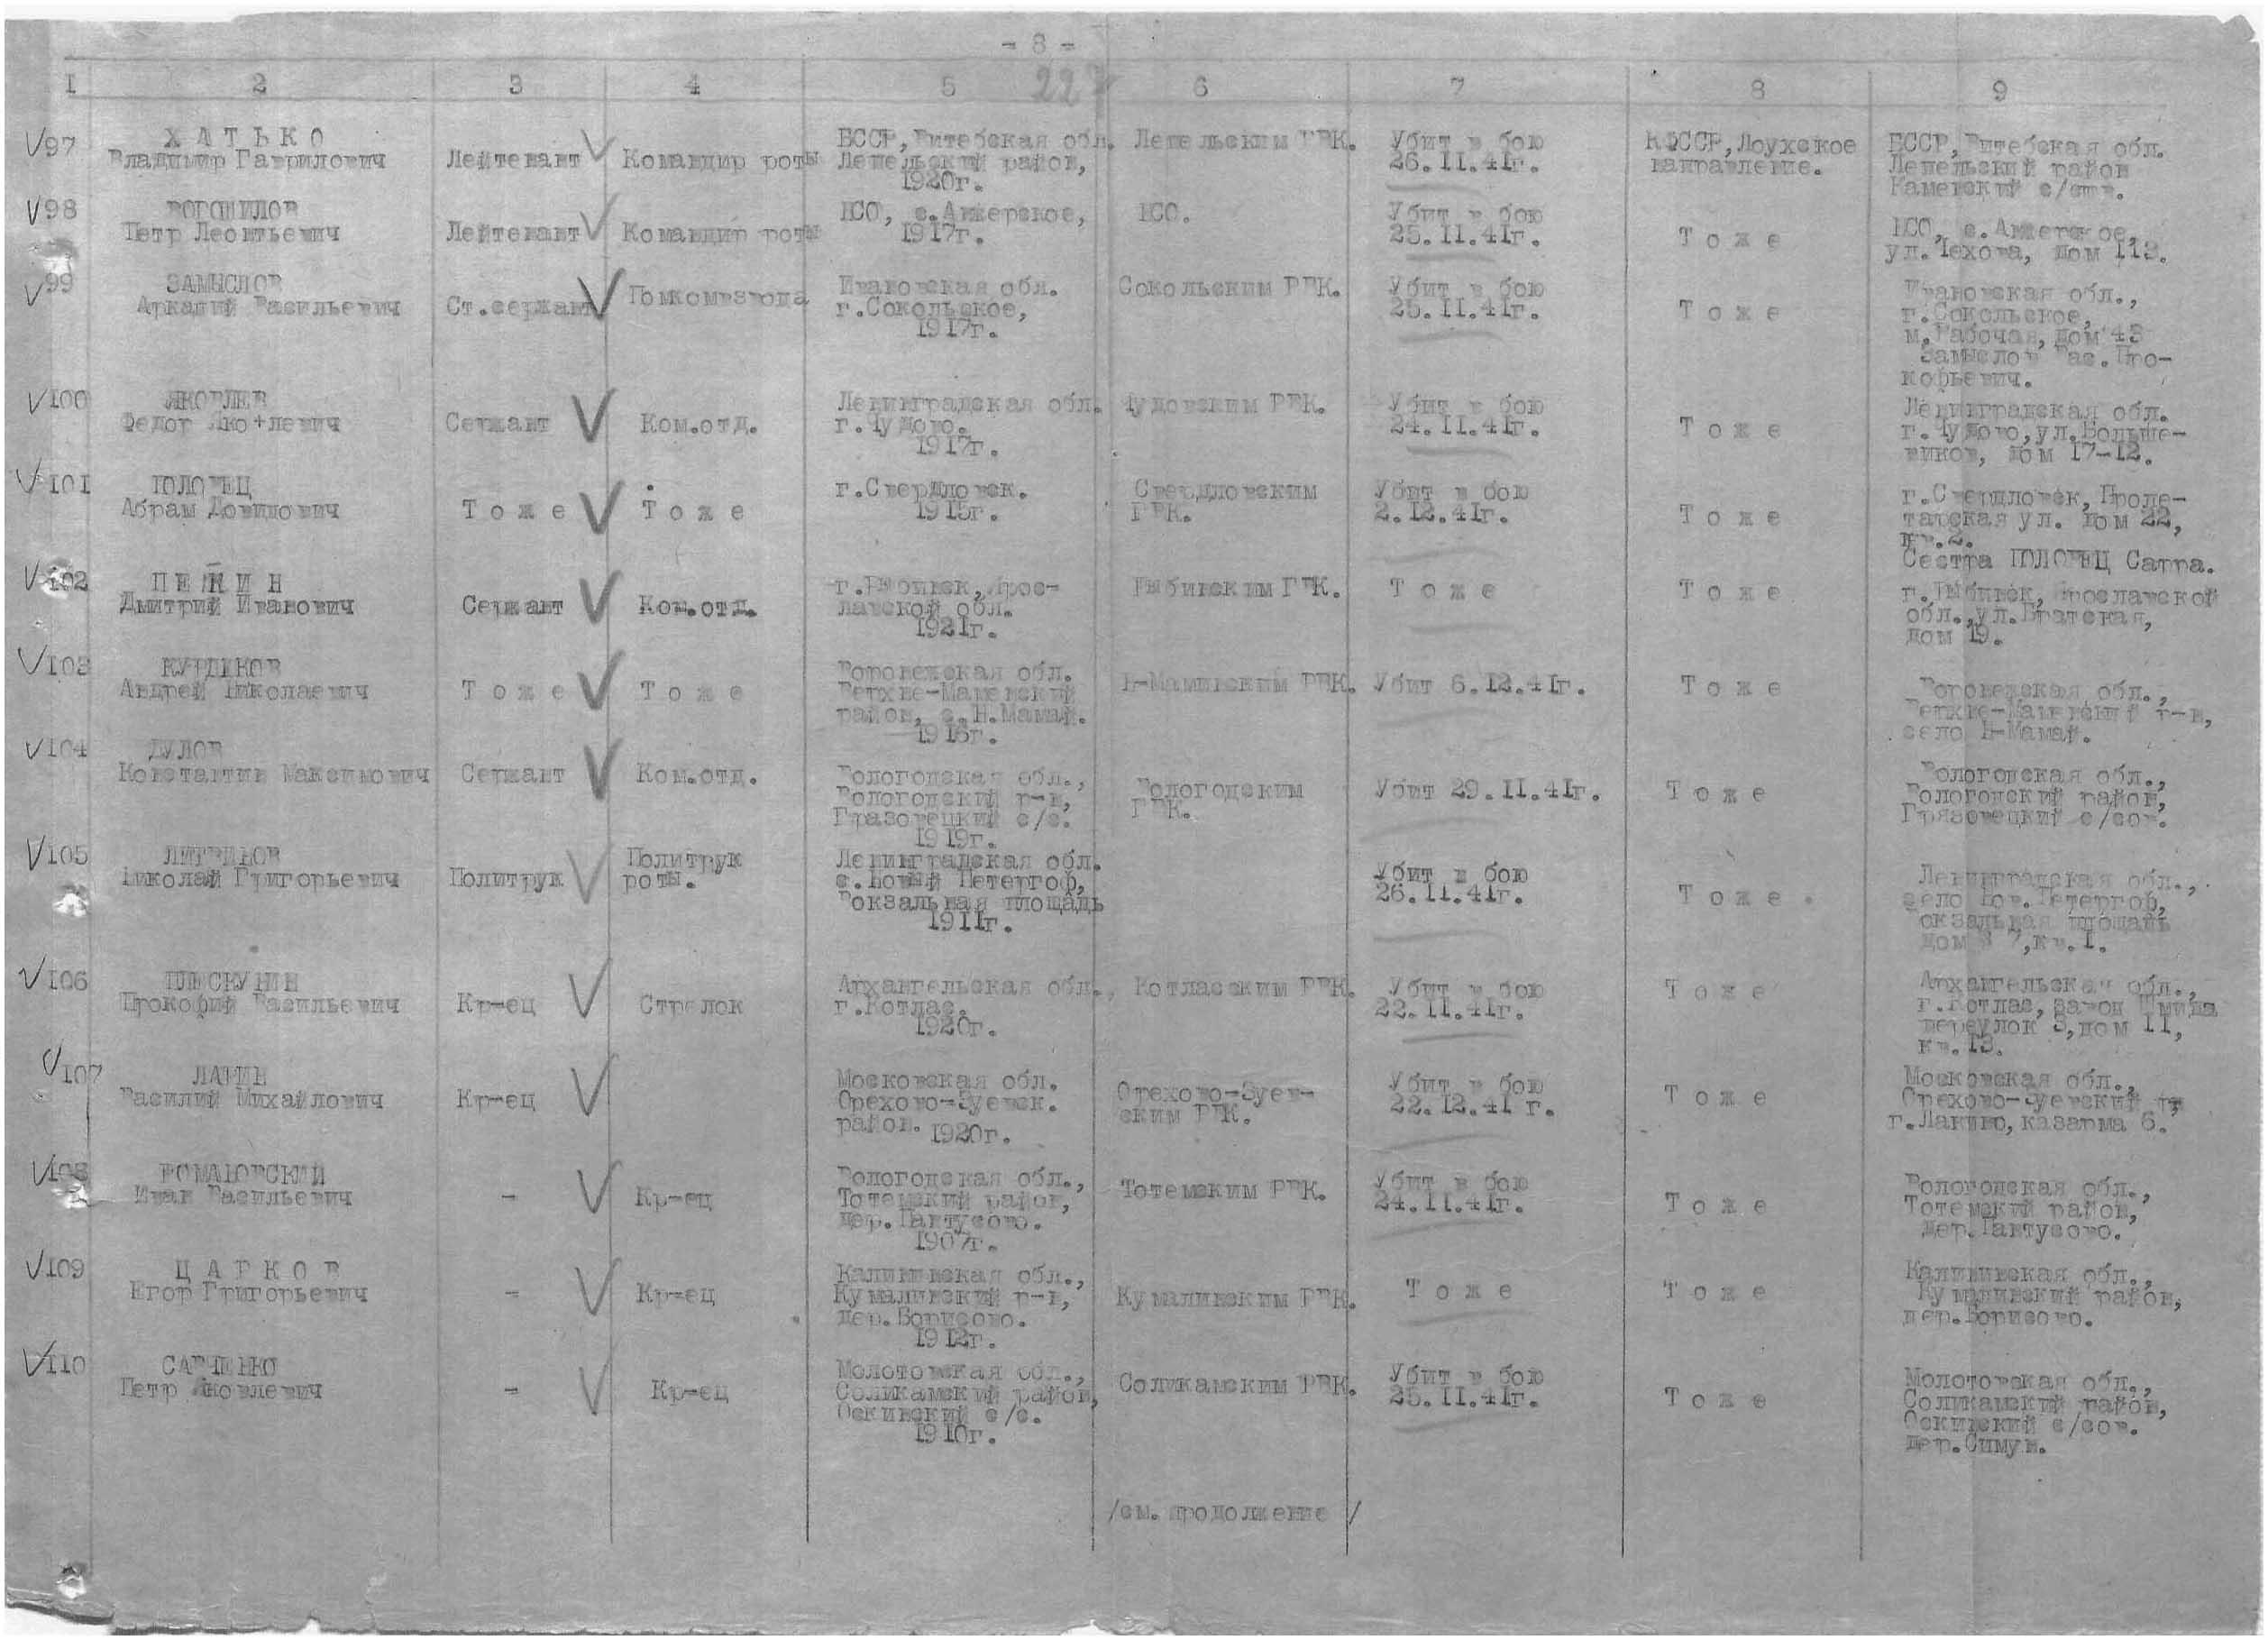 - 8 -
I 2 3 4 5 6 7 8 9
227
97 ХАТЬКО Владимир Гаврилович Лейтенант Командир роты БССР, Витебская обл. Лепельский район, 1920г. Лепельским РВК. Убит в бою 26.II.4Iг. КФССР, Лоухское направление. БССР, Витебская обл. Лепельский район Каменский с/
98 ВОРОШИЛОВ Петр Леонтьевич Лейтенант Командир роты НСО, с.Анжерское, 1917г. НСО. Убит в бою 25.II.4Iг. Тоже НСО, с.Анжерское, ул.Чехова, дом 113.
99 ЗАМЫСЛОВ Аркадий Васильевич Ст.сержант Помкомвзвода Ивановская обл. г.Сокольское, 1917г. Сокольским РВК. Убит в бою 25.II.4Iг. Тоже Ивановская обл., г.Сокольское, м.Рабочая, дом 43 Замыслов Вас.Про-
кофьевич.
100 ЯКОВЛЕВ Федор Яко+левич Сержант Ком.отд. Ленинградская обл. г.Чудово. 1917г. Чудовским РВК. Убит в бою 24.II.4Iг. Тоже Ленинградская обл. г.Чудово, ул.Больше-
виков, дом 17-12.
101 ПОЛОВЕЦ Абрам Довидович Тоже Тоже г.Свердловск. 1915г. Свердловским ГВК. Убит в бою 2.12.4Iг. Тоже г.Свердловск, Проле-
тарская ул. дом 22, кв.2.
Сестра ПОЛОВЕЦ Сарра.
102 Дмитрий Иванович Сержант Ком.отд. г.Рыбинск, Ярос-
лавской обл. 1921г. Рыбинским ГВК. Тоже Тоже г.Рыбинск, Ярославской обл., ул.Братская, дом 19.
103 КУРДЮКОВ Андрей Николаевич Тоже Тоже Воронежская обл. Верхне-Мамонский район, с.Н.Мамай. 1916г. РВК. Убит 6.12.4Iг. Тоже Воронежская обл., Верхне-Мамонский р-н, село Н-Мамай.
104 ДУЛОВ Константин Максимович Сержант Ком.отд. Вологодская обл., Вологодский р-н, Грязовецкий с/с. 1919г. Вологодским ГВК. Убит 29.II.4Iг. Тоже Вологодская обл., Вологодский район, Грязовецкий с/сов.
105 ЛИТВИНОВ Николай Григорьевич Политрук Политрук роты. Ленинградская обл. с.Новый Петергоф, Вокзальная площадь 1911г. Убит в бою 26.II.4Iг. Тоже Ленинградская обл., село Нов.Петергоф, Вокзальная площадь дом 7, кв.I.
106 ПЛЕСКУНИН Прокофий Васильевич Кр-ец Стрелок Архангельская обл., г.Котлас. 1920г. Котласским РВК. Убит в бою 22.II.4Iг. Тоже Архангельская обл., г.Котлас, завод переулок 3, дом 11, кв.13.
107 ЛАРИН Василий Михайлович Кр-ец Московская обл. Орехово-Зуевск. район. 1920г. Орехово-Зуев-
ским РВК. Убит в бою 22.12.41 г. Тоже Московская обл., Орехово-Зуевский г.Лакино, казарма 6.
108 РОМАНОВСКИЙ Иван Васильевич - Кр-ец Вологодская обл., Тотемский район, дер.Пантусово. 1907г. Тотемским РВК. Убит в бою 24.II.4Iг. Тоже Вологодская обл., Тотемский район, дер.Пантусово.
109 ЦАРКОВ Егор Григорьевич - Кр-ец Калининская обл., Кумалинский р-н, дер.Борисово. 1912г. Кумалинским РВК. Тоже Тоже Калининская обл., Кумалинский район, дер.Борисово.
110 САВЧЕНКО Петр Яковлевич - Кр-ец Молотовская обл., Соликамский район, Оскинский с/с. 1910г. Соликамским РВК. Убит в бою 25.II.4Iг. Тоже Молотовская обл., Соликамский район, Оскинский с/сов. дер.Симун.
/см. продолжение /